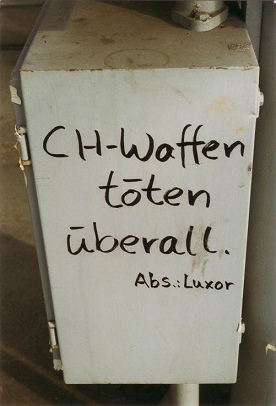 CH-Waffen
töten
überall.
Abs.: Luxor